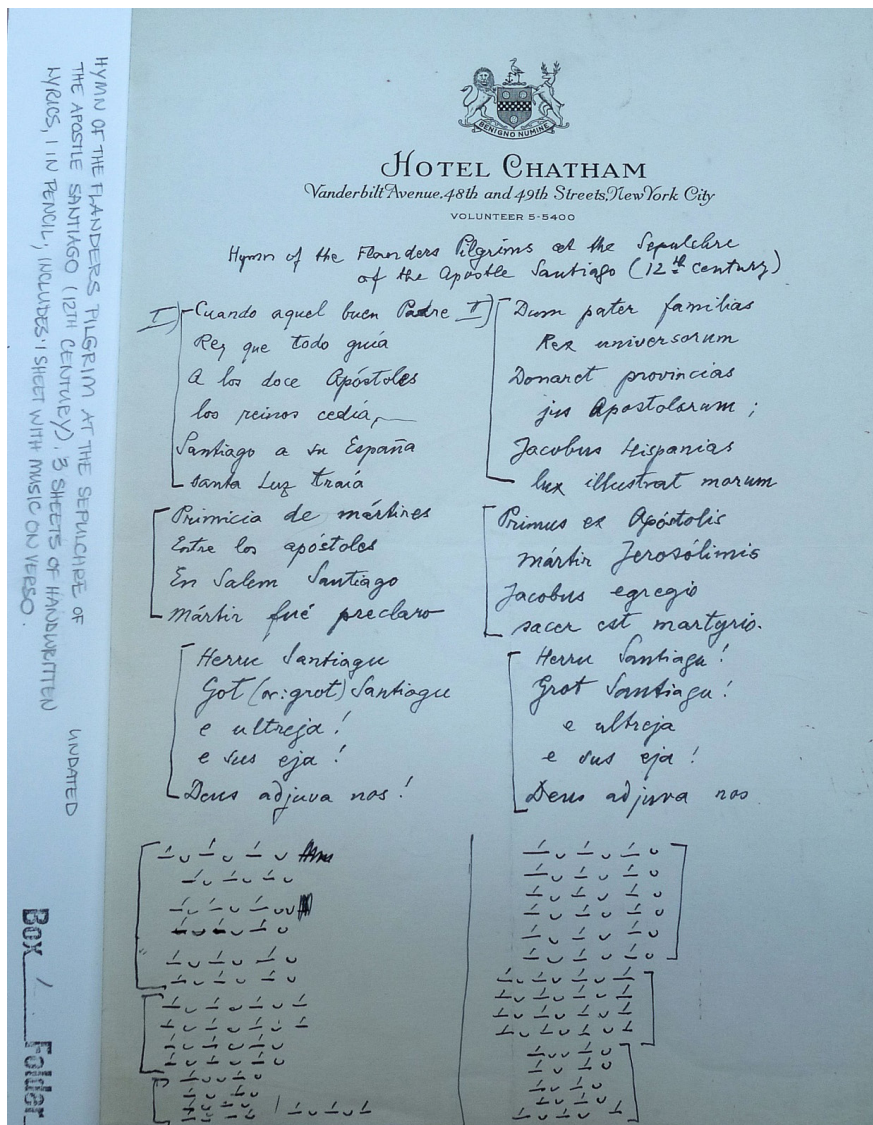 HYMN OF THE FLANDERS PILGRIM AT THE SEPULCHRE OF
THE APOSTLE SANTIAGO (12TH CENTURY). 3 SHEETS OF HANDWRITTEN
LYRICS, 1 IN PENCIL; INCLUDES 1 SHEET WITH MUSIC ON VERSO.
UNDATED
Box 1 Folder
BENIGNO NUMINE
HOTEL CHATHAM
Vanderbilt Avenue, 48th and 49th Streets, New York City
VOLUNTEER 5-5400
Hymn of the Flanders Pilgrims at the Sepulchre
of the Apostle Santiago (12th century)
I) Cuando aquel buen Padre
Rey que todo guía
A los doce Apóstoles
los reinos cedía,
Santiago a su España
santa Luz traía
Primicia de mártires
Entre los apóstoles
En Salem Santiago
Mártir fué preclaro
Herru Santiagu
Got (or: grot) Santiagu
e ultreja!
e sus eja!
Deus adjuva nos!
II) Dum pater familias
Rex universorum
Donaret provincias
jus Apostolorum;
Jacobus Hispanias
lux illustrat morum
Primus ex Apóstolis
mártir Jerosólimis
Jacobus egregio
sacer est martyrio.
Herru Santiagu!
Grot Santiagu!
e ultreja
e sus eja!
Deus adjuva nos